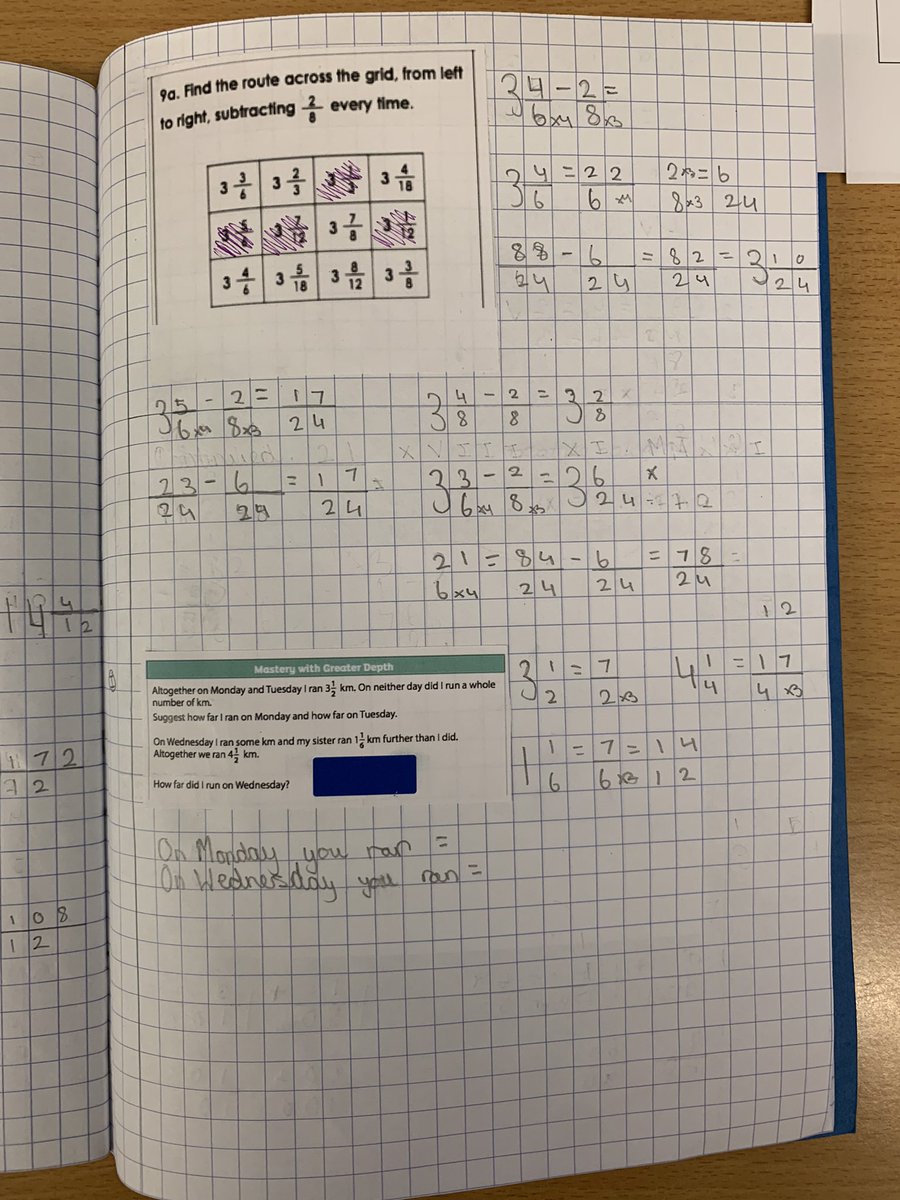 9a. Find the route across the grid, from left
to right, subtracting 2/8 every time.
3 3/6 3 2/3 3 4/18
3 7/12 3 7/8 3 1/12
3 4/6 3 5/18 3 8/12 3 3/8
3 4/6×4 - 2/8×3 =
3 4/6 = 22/6 ×4 2×3/8×3 = 6/24
88/24 - 6/24 = 82/24 = 3 10/24
3 5/6×4 - 2/8×3 = 17/24
23/24 - 6/24 = 17/24 =
3 4/8 - 2/8 = 3 2/8 ×
3 3/6×4 - 2/8×3 = 3 6/24 ×
21/6×4 = 84/24 - 6/24 = 78/24 =
12
Mastery with Greater Depth
Altogether on Monday and Tuesday I ran 3 1/2 km. On neither day did I run a whole
number of km.
Suggest how far I ran on Monday and how far on Tuesday.
On Wednesday I ran some km and my sister ran 1 1/6 km further than I did.
Altogether we ran 4 1/2 km.
How far did I run on Wednesday?
3 1/2 = 7/2×3 4 1/4 = 17/4×3
1 1/6 = 7/6×3 = 14/12
On Monday you ran =
On Wednesday you ran =
14 4/12
172/12
108/12